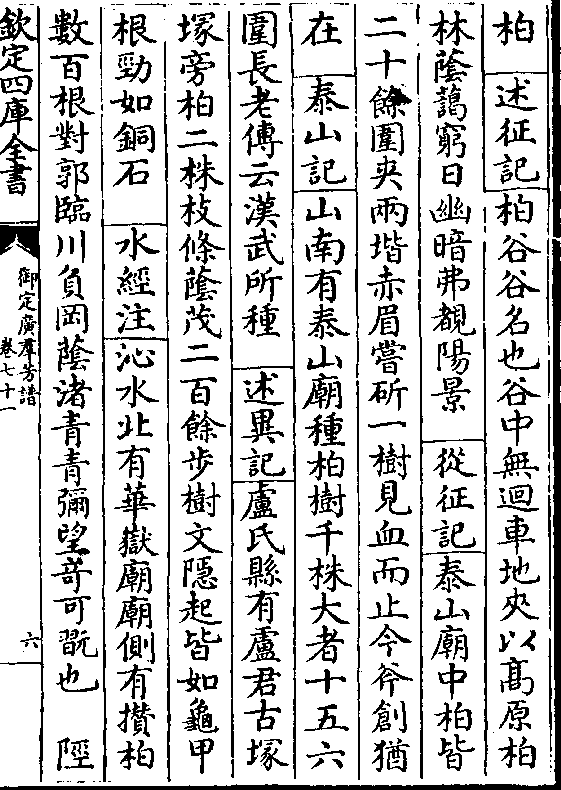 柏　述征記　柏谷谷名也谷中無迴車地夾以髙原柏
林蔭藹窮日幽暗弗覩陽景　從征記　泰山廟中柏皆
二十餘圍夾兩堦赤眉嘗斫一樹見血而止今斧創猶
在　泰山記　山南有泰山廟種柏樹千株大者十五六
圍長老傳云漢武所種　述異記　盧氏縣有盧君古塚
塚旁柏二株枝條蔭茂二百餘歩樹文隠起皆如龜甲
根勁如銅石　水經注　沁水北有華嶽廟廟側有攅柏
數百根對郭臨川負岡蔭渚青青彌望竒可翫也　陘
欽定四庫全書
御定廣羣芳譜
卷七十一
六